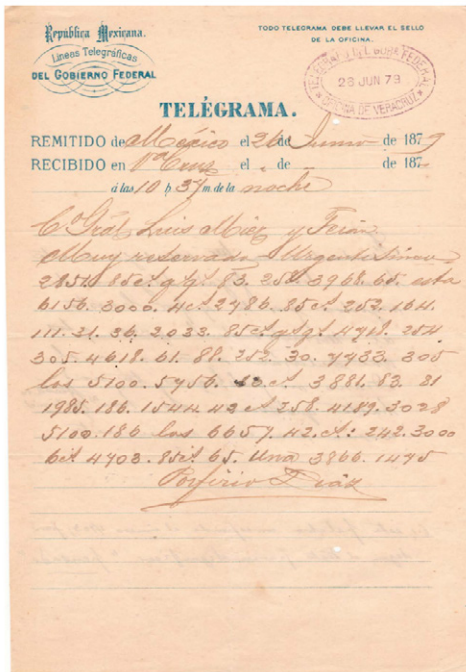 República Mexicana.
Líneas Telegráficas
DEL GOBIERNO FEDERAL
TODO TELEGRAMA DEBE LLEVAR EL SELLO
DE LA OFICINA.
TELEGRAFO DEL GOB. FEDERAL
26 JUN 79
OFICINA DE VERACRUZ
TELÉGRAMA.
REMITIDO de México el 24 Junio de 1879
RECIBIDO en Va Cruz el " de " de 187"
á las 10 h 37 m. de la noche
Co Gral Luis Mier y Terán
Muy reservado - Urgentísimo
2851. 85 83. 258. 3968. 65. esta
6156. 3000. 4ct 2786. 85ct. 252. 164.
111. 31. 36. 2033. 85ct 4718. 254
305. 4618. 61. 88. 252. 30. 7433. 305
los 5100. 5756. 3881. 83. 21
1985. 186. 1544 42ct 258. 4189. 3028
5100. 186 los 6657. 42.ct: 242. 3000
6ct 4703. 85ct 65. Una 3866. 1475
Porfirio Díaz